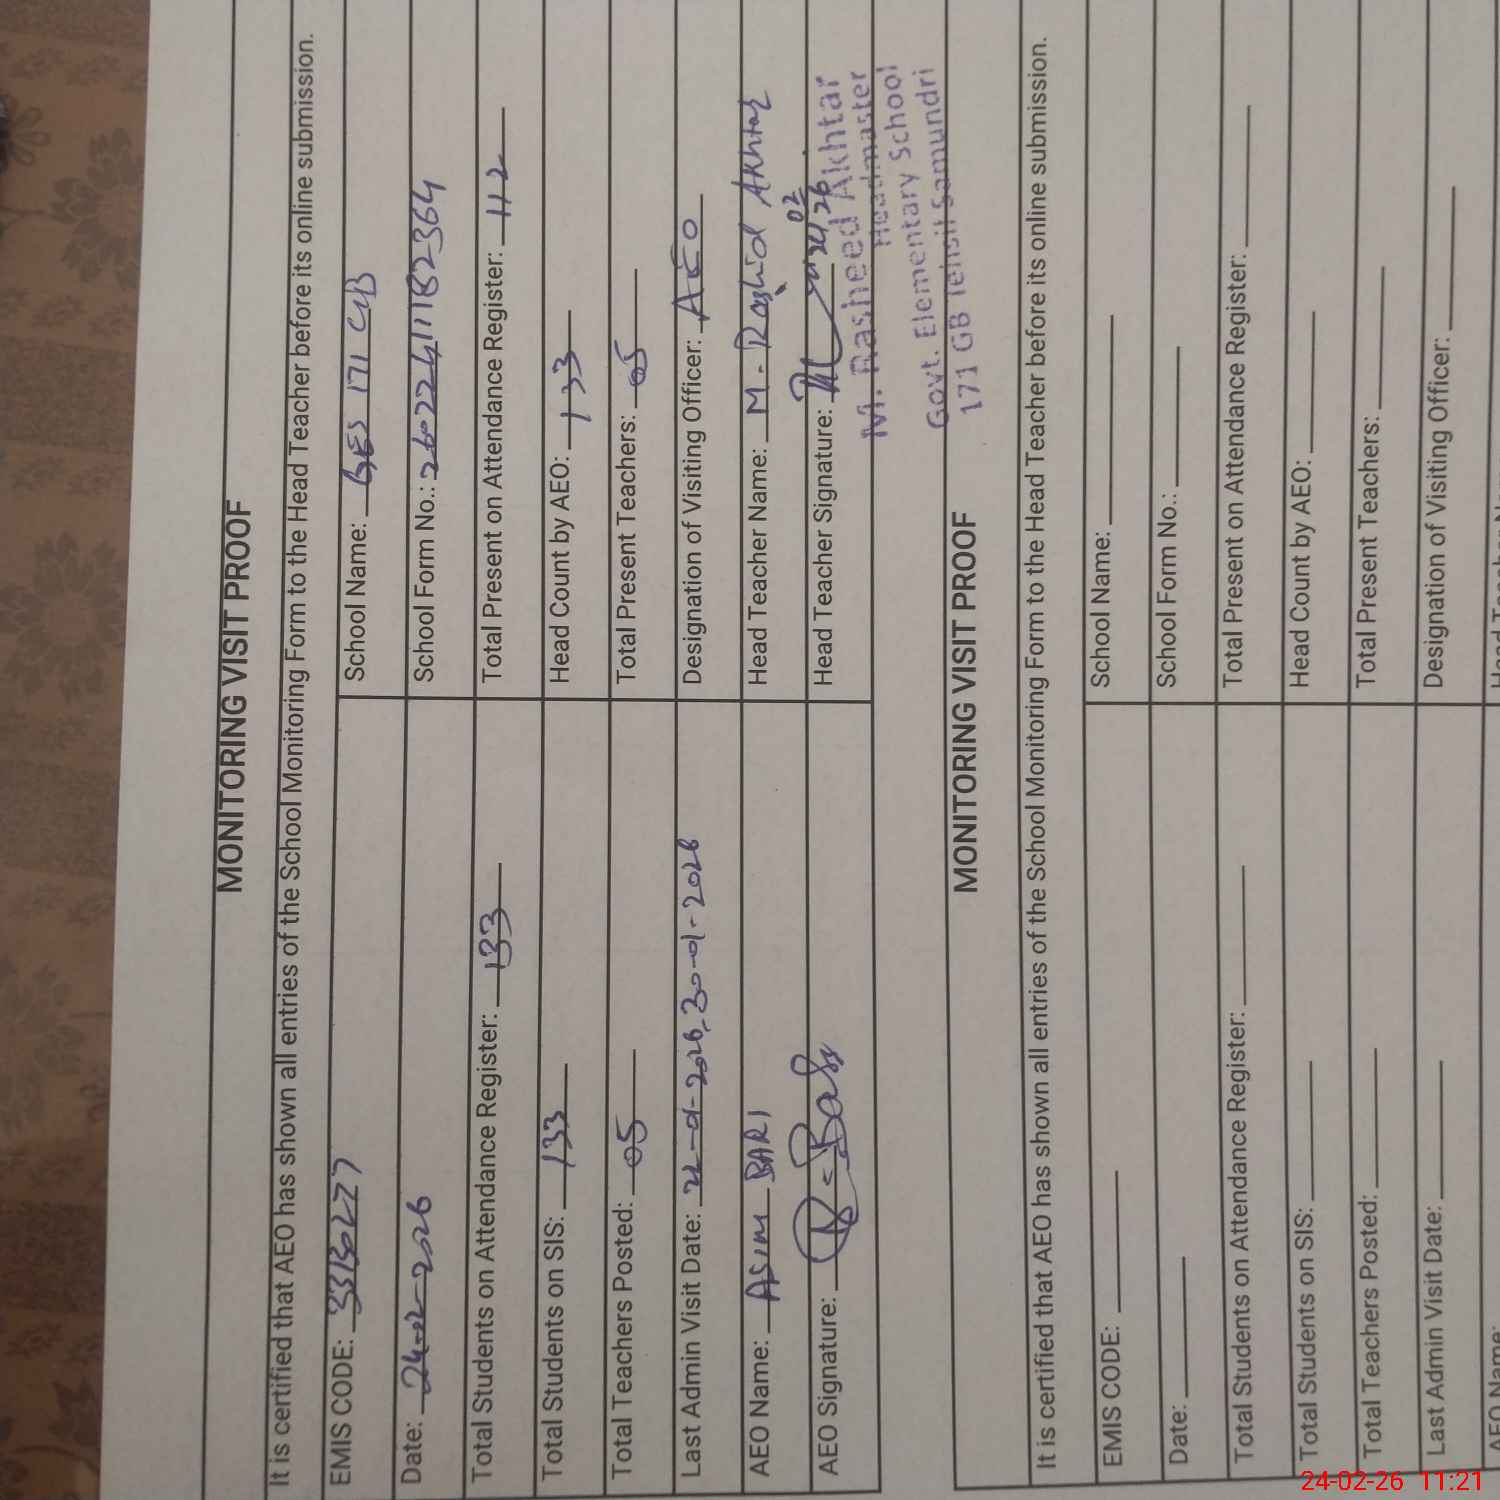 MONITORING VISIT PROOF
It is certified that AEO has shown all entries of the School Monitoring Form to the Head Teacher before its online submission.
EMIS CODE: 33130277 School Name: GES 171 GB
Date: 24-02-2026 School Form No.: 260224111182364
Total Students on Attendance Register: 133 Total Present on Attendance Register: 112
Total Students on SIS: 133 Head Count by AEO: 133
Total Teachers Posted: 05 Total Present Teachers: 05
Last Admin Visit Date: 30-01-2026 Designation of Visiting Officer: AEO
AEO Name: ASIM BARI Head Teacher Name: M. Rashid Akhtar
AEO Signature: Head Teacher Signature:
M. Rasheed Akhtar
Headmaster
Govt. Elementary School
171 GB Tehsil Samundri
MONITORING VISIT PROOF
It is certified that AEO has shown all entries of the School Monitoring Form to the Head Teacher before its online submission.
EMIS CODE: School Name:
Date: School Form No.:
Total Students on Attendance Register: Total Present on Attendance Register:
Total Students on SIS: Head Count by AEO:
Total Teachers Posted: Total Present Teachers:
Last Admin Visit Date: Designation of Visiting Officer:
AEO Name:
24-02-26 11:21